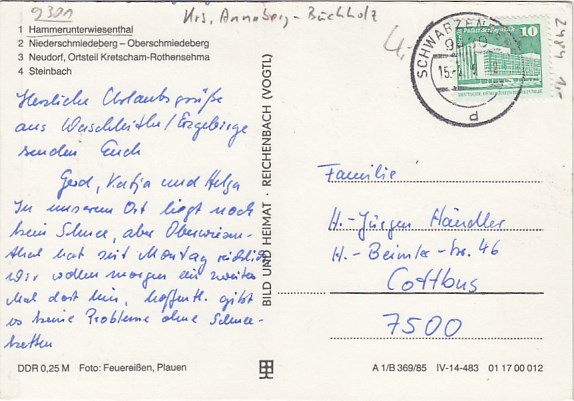 9301
Krs. Annaberg-Buchholz
4,-
2484 1,-
1 Hammerunterwiesenthal
2 Niederschmiedeberg – Oberschmiedeberg
3 Neudorf, Ortsteil Kretscham-Rothensehma
4 Steinbach
Herzliche Urlaubsgrüße
aus Waschleithe/Erzgebirge
senden Euch
Gerd, Katja und Helga
In unserem Ort liegt noch
kein Schnee, aber Oberwiesen-
thal hat seit Montag reichlich
Wir wollen morgen ein zweites
Mal dort hin, hoffentl. gibt
es keine Probleme ohne Schnee-
ketten
BILD UND HEIMAT · REICHENBACH (VOGTL)
10
SCHWARZENBERG
d
Familie
H.-Jürgen Händler
H.-Beimler-Str. 46
Cottbus
7500
DDR 0,25 M Foto: Feuereißen, Plauen
A 1/B 369/85 IV-14-483 01 17 00 012